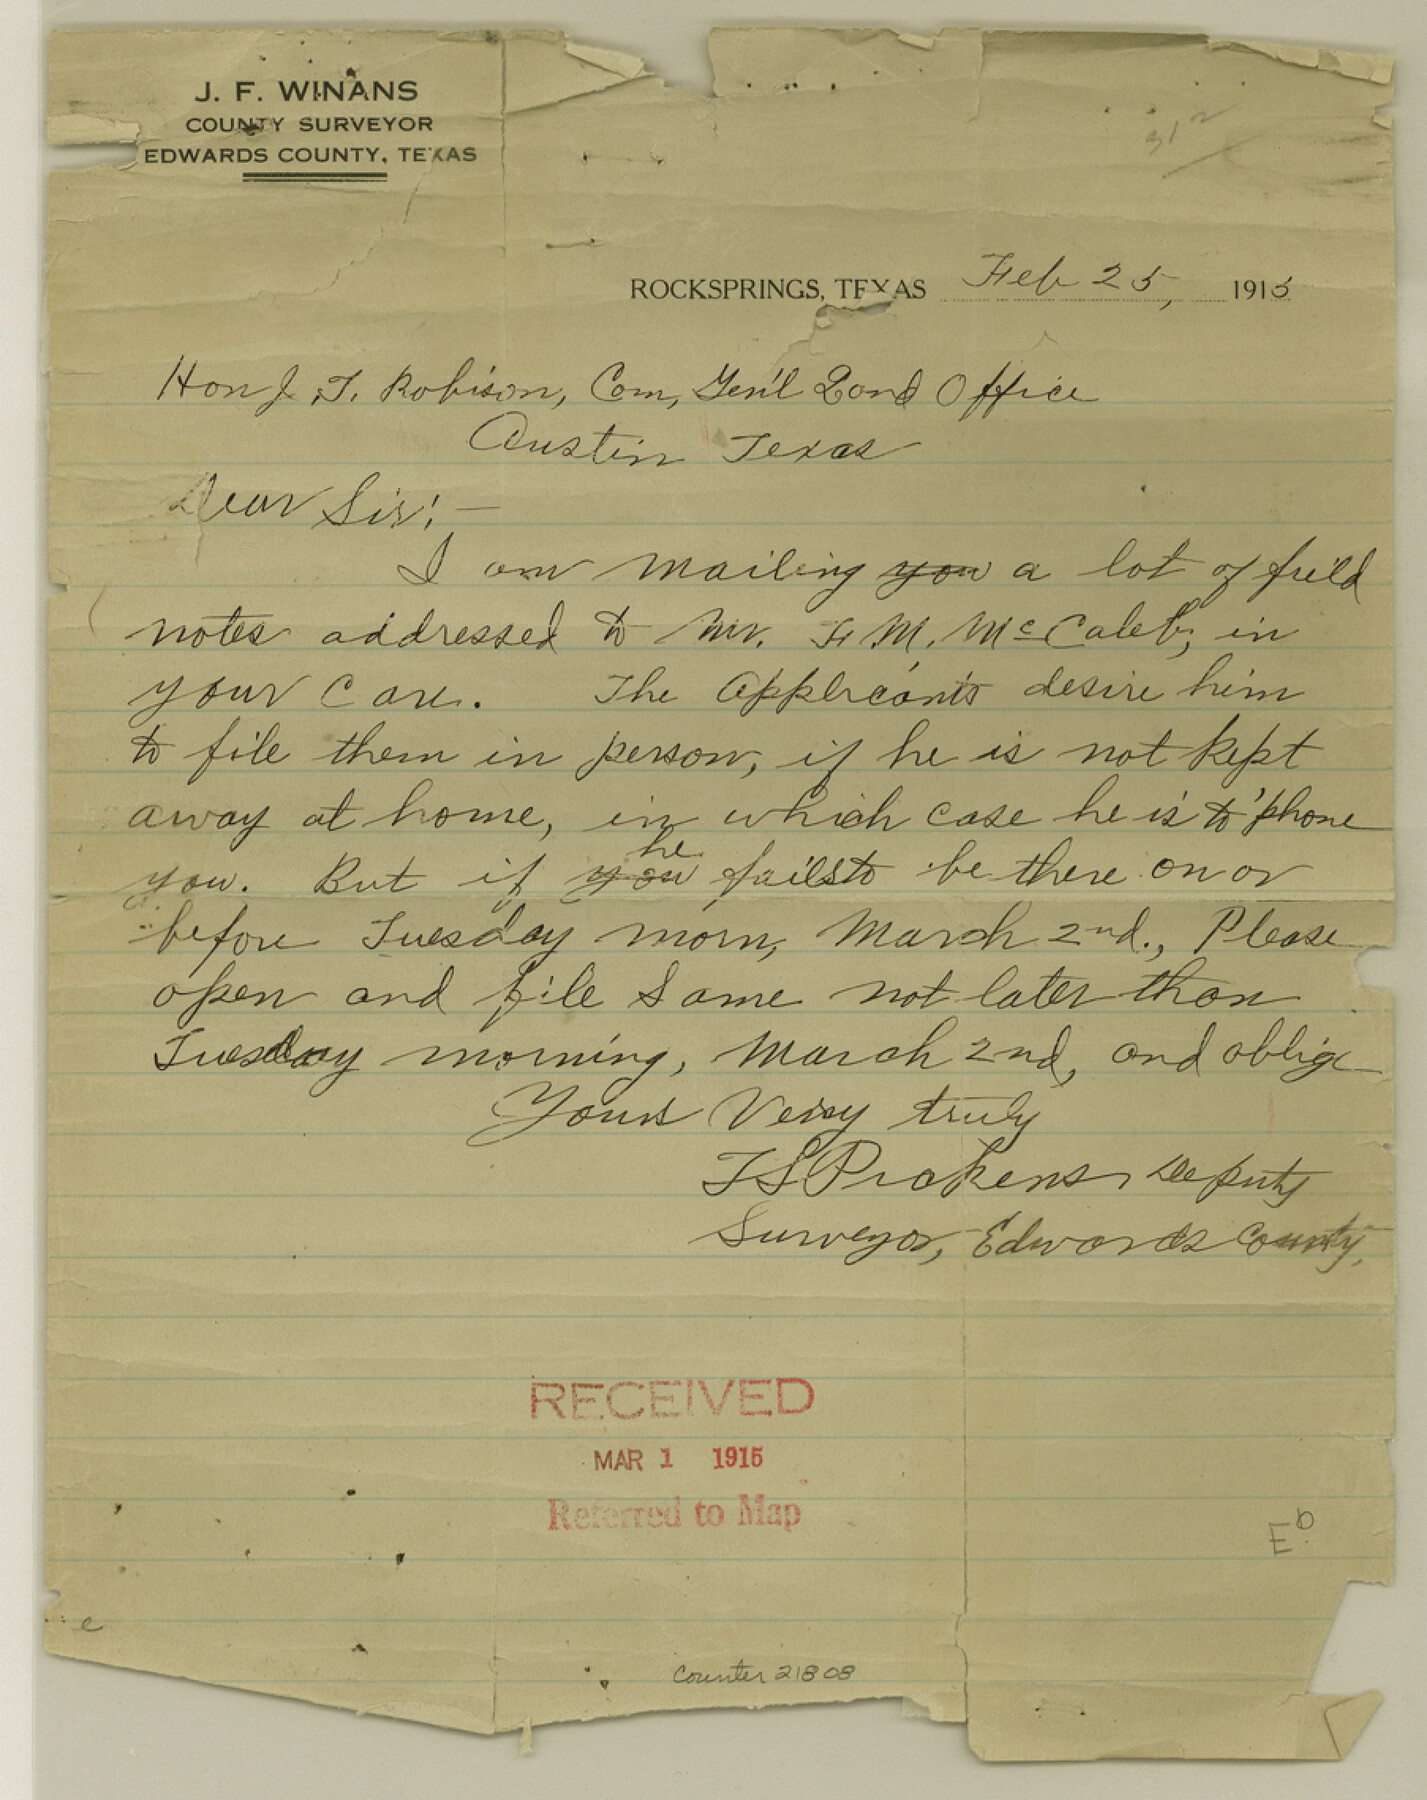 J. F. WINANS
COUNTY SURVEYOR
EDWARDS COUNTY, TEXAS
ROCKSPRINGS, TEXAS Feb 25, 1915
Hon J. T. Robison, Com, Gen'l Land Office
Austin Texas
Dear Sir:—
I am mailing you a lot of field
notes addressed to Mr. F. M. McCaleb, in
your care. The Applicants desire him
to file them in person, if he is not kept
away at home, in which case he is to 'phone
you. But if you he fails to be there on or
before Tuesday morn, March 2nd., Please
open and file same not later than
Tuesday morning, March 2nd, and oblige
Yours Very truly
T S Pickens Deputy
Surveyor, Edwards County,
RECEIVED
MAR 1 1915
Referred to Map
E D
e
Counter 21808